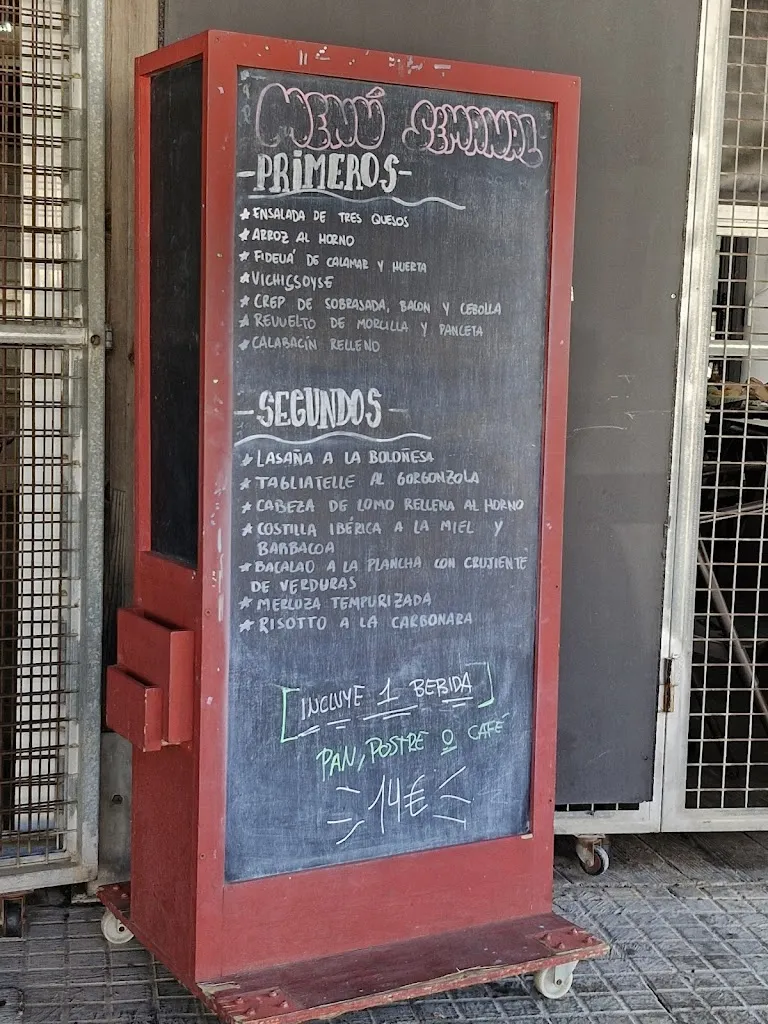 MENÚ SEMANAL
-PRIMEROS-
★ ENSALADA DE TRES QUESOS
★ ARROZ AL HORNO
★ FIDEUÁ DE CALAMAR Y HUERTA
★ VICHISSOYSE
★ CREP DE SOBRASADA, BACON Y CEBOLLA
★ REVUELTO DE MORCILLA Y PANCETA
★ CALABACÍN RELLENO
-SEGUNDOS-
★ LASAÑA A LA BOLOÑESA
★ TAGLIATELLE AL GORGONZOLA
★ CABEZA DE LOMO RELLENA AL HORNO
★ COSTILLA IBÉRICA A LA MIEL Y
BARBACOA
★ BACALAO A LA PLANCHA CON CRUJIENTE
DE VERDURAS
★ MERLUZA TEMPURIZADA
★ RISOTTO A LA CARBONARA
[INCLUYE 1 BEBIDA]
PAN, POSTRE O CAFÉ
14€